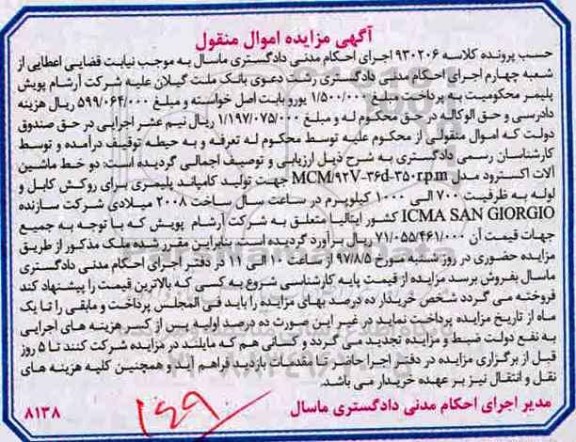 آگهی مزایده اموال منقول
حسب پرونده کلاسه ۹۳۰۲۰۶ اجرای احکام مدنی دادگستری ماسال به موجب نیابت قضایی اعطایی از
شعبه چهارم اجرای احکام مدنی دادگستری رشت دعوی بانک ملت گیلان علیه شرکت آرشام پویش
پلیمر محکومیت به پرداخت مبلغ ۱/۵۰۰/۰۰۰ یورو بابت اصل خواسته و مبلغ ۵۹۹/۰۶۴/۰۰۰ ریال هزینه
دادرسی و حق الوکاله در حق محکوم له و مبلغ ۱/۱۹۷/۰۷۵/۰۰۰ ریال نیم عشر اجرایی در حق صندوق
دولت که اموال منقولی از محکوم علیه توسط محکوم له تعرفه و به حیطه توقیف درآمده و توسط
کارشناسان رسمی دادگستری به شرح ذیل ارزیابی و توصیف اجمالی گردیده است: دو خط ماشین
آلات اکسترود مدل MCM/۹۲V-۳۶d-۳۵۰r.p.m جهت تولید کامپاند پلیمری برای روکش کابل و
لوله به ظرفیت ۷۰۰ الی ۱۰۰۰ کیلوپرم در ساعت سال ساخت ۲۰۰۸ میلادی شرکت سازنده
ICMA SAN GIORGIO کشور ایتالیا متعلق به شرکت آرشام پویش که با توجه به جمیع
جهات قیمت آن ۷۱/۰۵۵/۴۶۱/۰۰۰ ریال برآورد گردیده است. بنابراین مقرر شده ملک مذکور از طریق
مزایده حضوری در روز شنبه مورخ ۹۷/۸/۵ از ساعت ۱۰ الی ۱۱ در دفتر اجرای احکام مدنی دادگستری
ماسال بفروش برسد مزایده از قیمت پایه کارشناسی شروع به کسی که بالاترین قیمت را پیشنهاد کند
فروخته می گردد شخص خریدار ده درصد بهای مزایده را باید فی المجلس پرداخت و مابقی را تا یک
ماه از تاریخ مزایده پرداخت نماید در غیر این صورت ده درصد اولیه پس از کسر هزینه های اجرایی
به نفع دولت ضبط و مزایده تجدید می گردد و کسانی هم که مایلند در مزایده شرکت کنند تا ۵ روز
قبل از برگزاری مزایده در دفتر اجرا حاضر تا مقدمات بازدید فراهم آید و همچنین کلیه هزینه های
نقل و انتقال نیز بر عهده خریدار می باشد.
مدیر اجرای احکام مدنی دادگستری ماسال ۸۱۳۸
۱۶۹